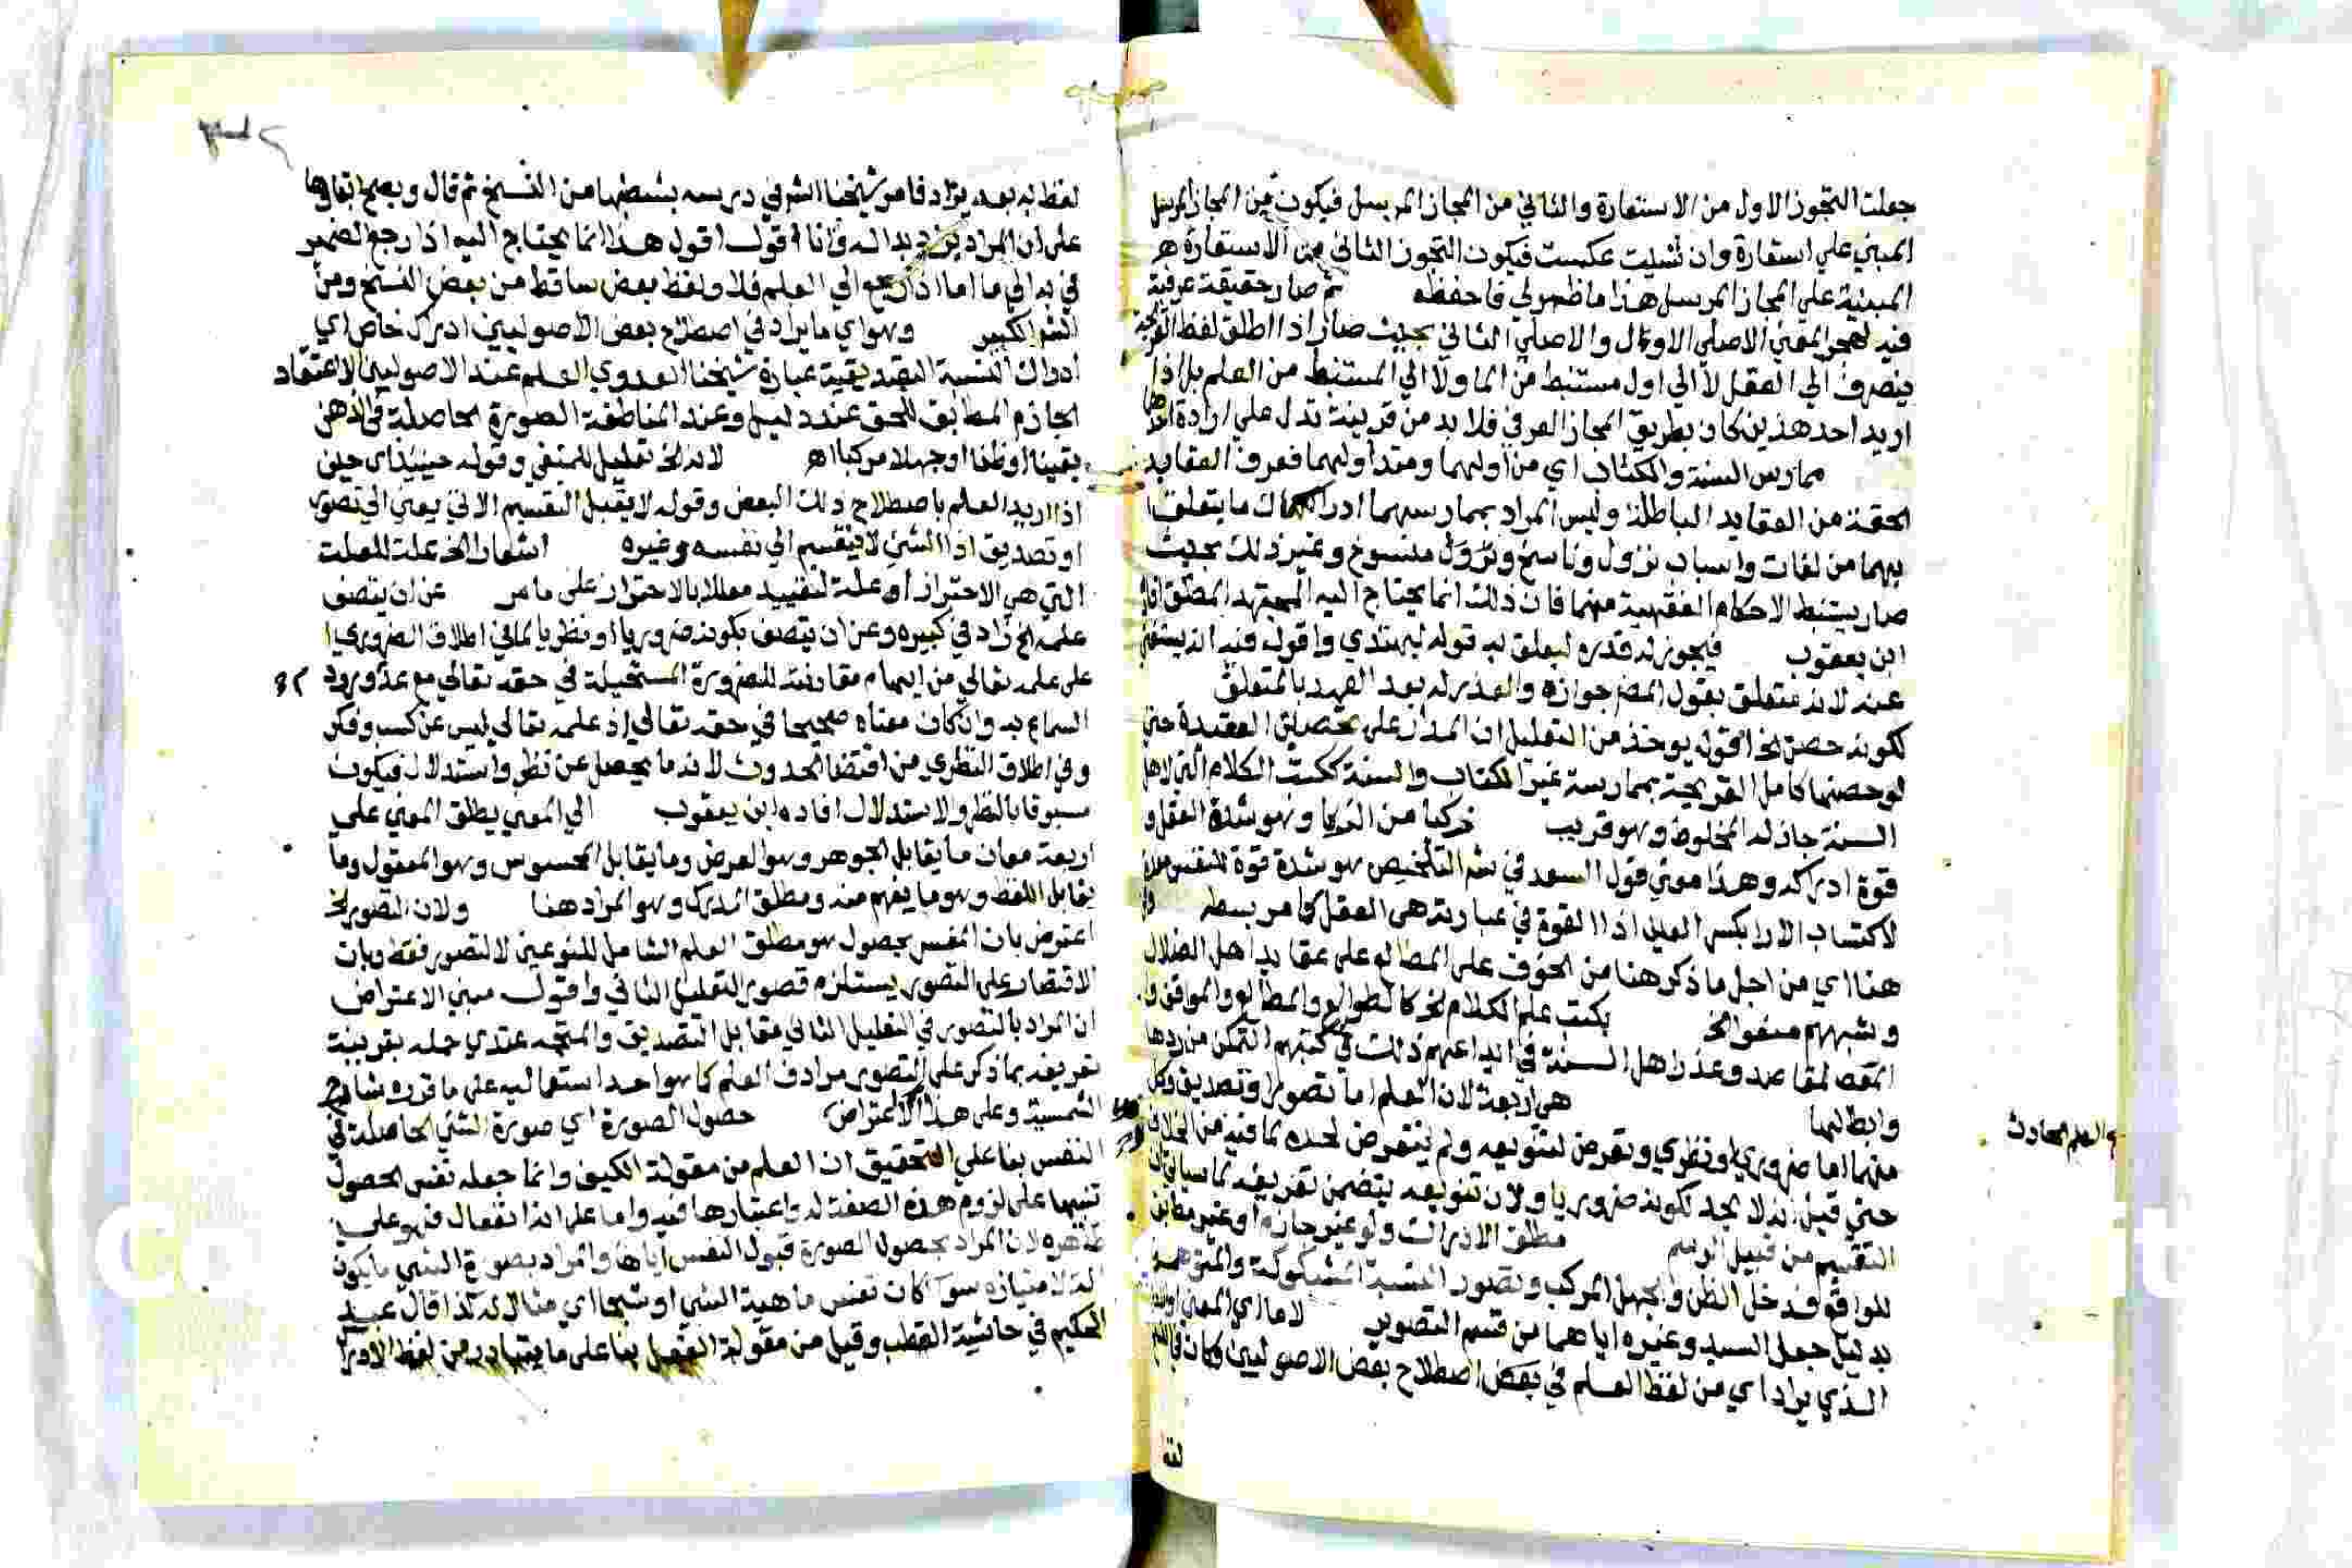 جعلت التجوز الاول من الاستعارة والثاني من المجاز المرسل فيكون من المجاز المرسل
المبني علي استعارة وان شيت عكست فيكون التجوز الثاني من الاستعارة
المبنية علي المجاز المرسل هذا ما ظهر لي فاحفظه ثم صار حقيقة عرفية
فيه لهجر المعني الاصلي الاول والاصلي الثاني بحيث صار اذا اطلق لفظ القريحة
ينصرف الي العقل لا الي اول مستنبط من الما ولا الي المستنبط من العلم بل اذا
اريد احد هذين كان بطريق المجاز العرفي فلا بد من قرينة تدل علي ارادة احدهما
ممارس السنة والكتاب اي من اولهما ومتداولهما فعرف العقايد
الحقة من العقايد الباطلة وليس المراد بممارسهما ادراك ما يتعلق
بهما من لغات واسباب نزول وناسخ ومنسوخ وغير ذلك بحيث
صار يستنبط الاحكام الفقهية منهما فان ذلك انما يحتاج اليه المجتهد المطلق افاده
ابن يعقوب فيجوز له قدره ليعلق به قوله ليهتدي واقول فيه انه يستغني
عنه لانه متعلق بقول المصر جوازه والعذر له بعد العهد بالمتعلق
لكونه حصن الخ اقول يوخذ من التعليل ان المدار علي تحصين العقيدة حتي
لو حصنها كامل القريحة بممارسة غير الكتاب والسنة ككتب الكلام التي لاهل
السنة جاز له المخلوط وهو قريب ذكيا من الذكا وهو شدة العقل و
قوة ادراكه وهذا معني قول السعد في شر التلخيص هو شدة قوة للنفس معدة
لاكتساب الارا بكسر العين اذ القوة في عبارته هي العقل كما مر بسطه
هنا اي من اجل ما ذكر هنا من الخوف علي المطالع علي عقايد اهل الضلال
وشبههم منعوا الخ بكتب علم الكلام نحو كالطوالع والمطالع والمواقف و
المقصد لمقاصد وعذر اهل السنة في ايداعهم ذلك في كتبهم التمكن من ردها
وابطالها هي اربعة لان العلم اما تصور او تصديق وكل
منهما اما ضروري او نظري وتعرض لتنويعه ولم يتعرض لحده لما فيه من الخلاف
حتي قيل انه لا يحد لكونه ضروريا ولان تنويعه يتضمن تعريفه لما سياتي ان
التقسيم من قبيل الرسم مطلق الادراك ولو غير جازم او غير مطابق
للواقع فدخل الظن والجهل المركب وتصور النسبة المشكوكة والمتوهمة
بدليل جعل السيد وغيره اياهما من قسم التصور لا ما اي المعني
الذي يراد اي من لفظ العلم في بعض اصطلاح بعض الاصوليين وكان
والعلم الحادث
لفظ به بعد يراد فامر شيخنا الشرفي درسه بشطبها من النسخ ثم قال ويصح ابقاوها
علي ان المراد يزيد بداله وانا اقول اقول هذا انما يحتاج اليه اذا رجع الضمير
في به الي ما اما اذا رجع الي العلم فلا ولفظ بعض ساقط من بعض النسخ ومن
الشر الكبير وهو اي ما يراد في اصطلاح بعض الاصوليين ادراك خاص اي
ادراك النسبة التصديقية عبارة شيخنا العدوي العلم عند الاصوليين الاعتقاد
الجازم المطابق للحق عند دليل وعند المناطقة الصورة الحاصلة في الذهن
يقينا او ظنا او جهلا مركبا اه لانه الخ تعليل للمنفي وقوله حينيذ اي حين
اذ اريد العلم باصطلاح ذلك البعض وقوله لا يقبل التقسيم الاتي يعني الي تصور
او تصديق اذ الشي لا ينقسم الي نفسه وغيره اشعارا الخ علة للعلت
التي هي الاحتراز او علة لتقييد معللا بالاحتراز علي ما مر عن ان يتصف
علمه الخ زاد في كبيره وعن ان يتصف بكونه ضروريا او نظريا لما في اطلاق الضروري
علي علمه تعالي من ايهام مقارنة للضرورة المستحيلة في حقه تعالي مع عدم ورود
السماع به وان كان معناه صحيحا في حقه تعالي اذ علمه تعالي ليس عن كسب وفكر
وفي اطلاق النظري من اقتضا الحدوث لانه ما يحصل عن نظر واستدلال فيكون
مسبوقا بالنظر والاستدلال افاده ابن يعقوب الي المعني يطلق المعني علي
اربعة معان ما يقابل الجوهر وهو العرض وما يقابل المحسوس وهو المعقول وما
يقابل اللفظ وهو ما يفهم منه ومطلق المدرك وهو المراد هنا ولان التصور الخ
اعترض بان المفسر بحصول هو مطلق العلم الشامل للنوعين لا التصور فقط وبان
الاقتصار علي التصور يستلزم قصور التعليل الثاني واقول مبني الاعتراض
ان المراد بالتصور في التعليل الثاني مقابل التصديق والمتجه عندي حمله بقرينة
تعريفه بما ذكر علي التصور مرادف العلم كما هو احد استعماليه علي ما قرره شارح
الشمسية وعلي هذا لا اعتراض حصول الصورة اي صورة الشي الحاصلة في
النفس بنا علي التحقيق ان العلم من مقولة الكيف وانما جعله نفس الحصول
تنبيها علي لزوم هذه الصفة له واعتبارها فيه واما علي انه انفعال فهو علي
ظاهره لان المراد بحصول الصورة قبول النفس اياها والمراد بصورة الشي ما يكون
الة لامتيازه سوا كان نفس ماهية الشي او شبحا اي مثالا له كذا قال عبد
الحكيم في حاشية القطب وقيل من مقولة الفعل بنا علي ما يتبادر من لفظ الادراك